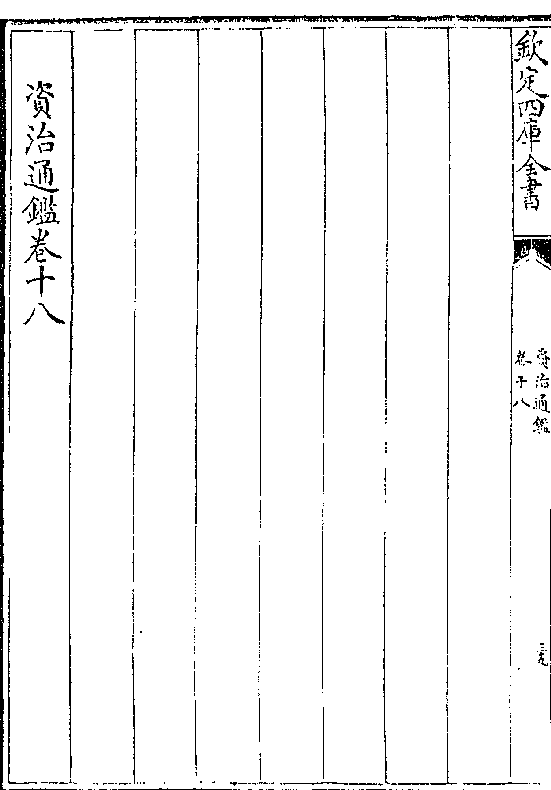 欽定四庫全書
資治通鑑
卷十八
三九
資治通鑑卷十八